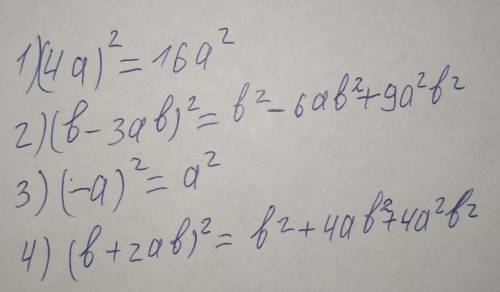 1)(4a)² = 16a²
2)(в-3ав)² = в²-6ав²+9а²в²
3)(-a)² = a²
4) (в+2ав)² = в²+4ав²+4а²в²